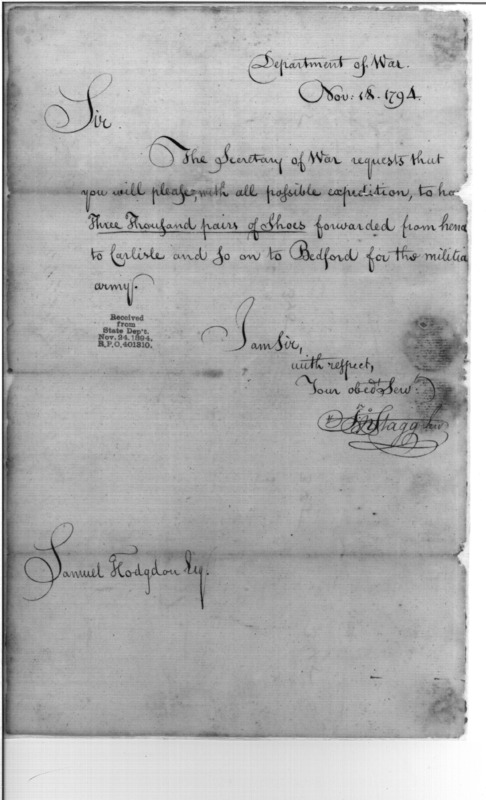 Department of War.
Nov: 18. 1794.
Sir.
The Secretary of War requests that
you will please, with all possible expedition, to ha
Three Thousand pairs of Shoes forwarded from henc
to Carlisle and so on to Bedford for the militia
army.
Received
from
State Dep't.
Nov. 24. 1894.
R.P.O. 401310.
I am Sir,
with respect,
Your obedt. Servt.
Jno Stagg Junr
Samuel Hodgdon Esq.